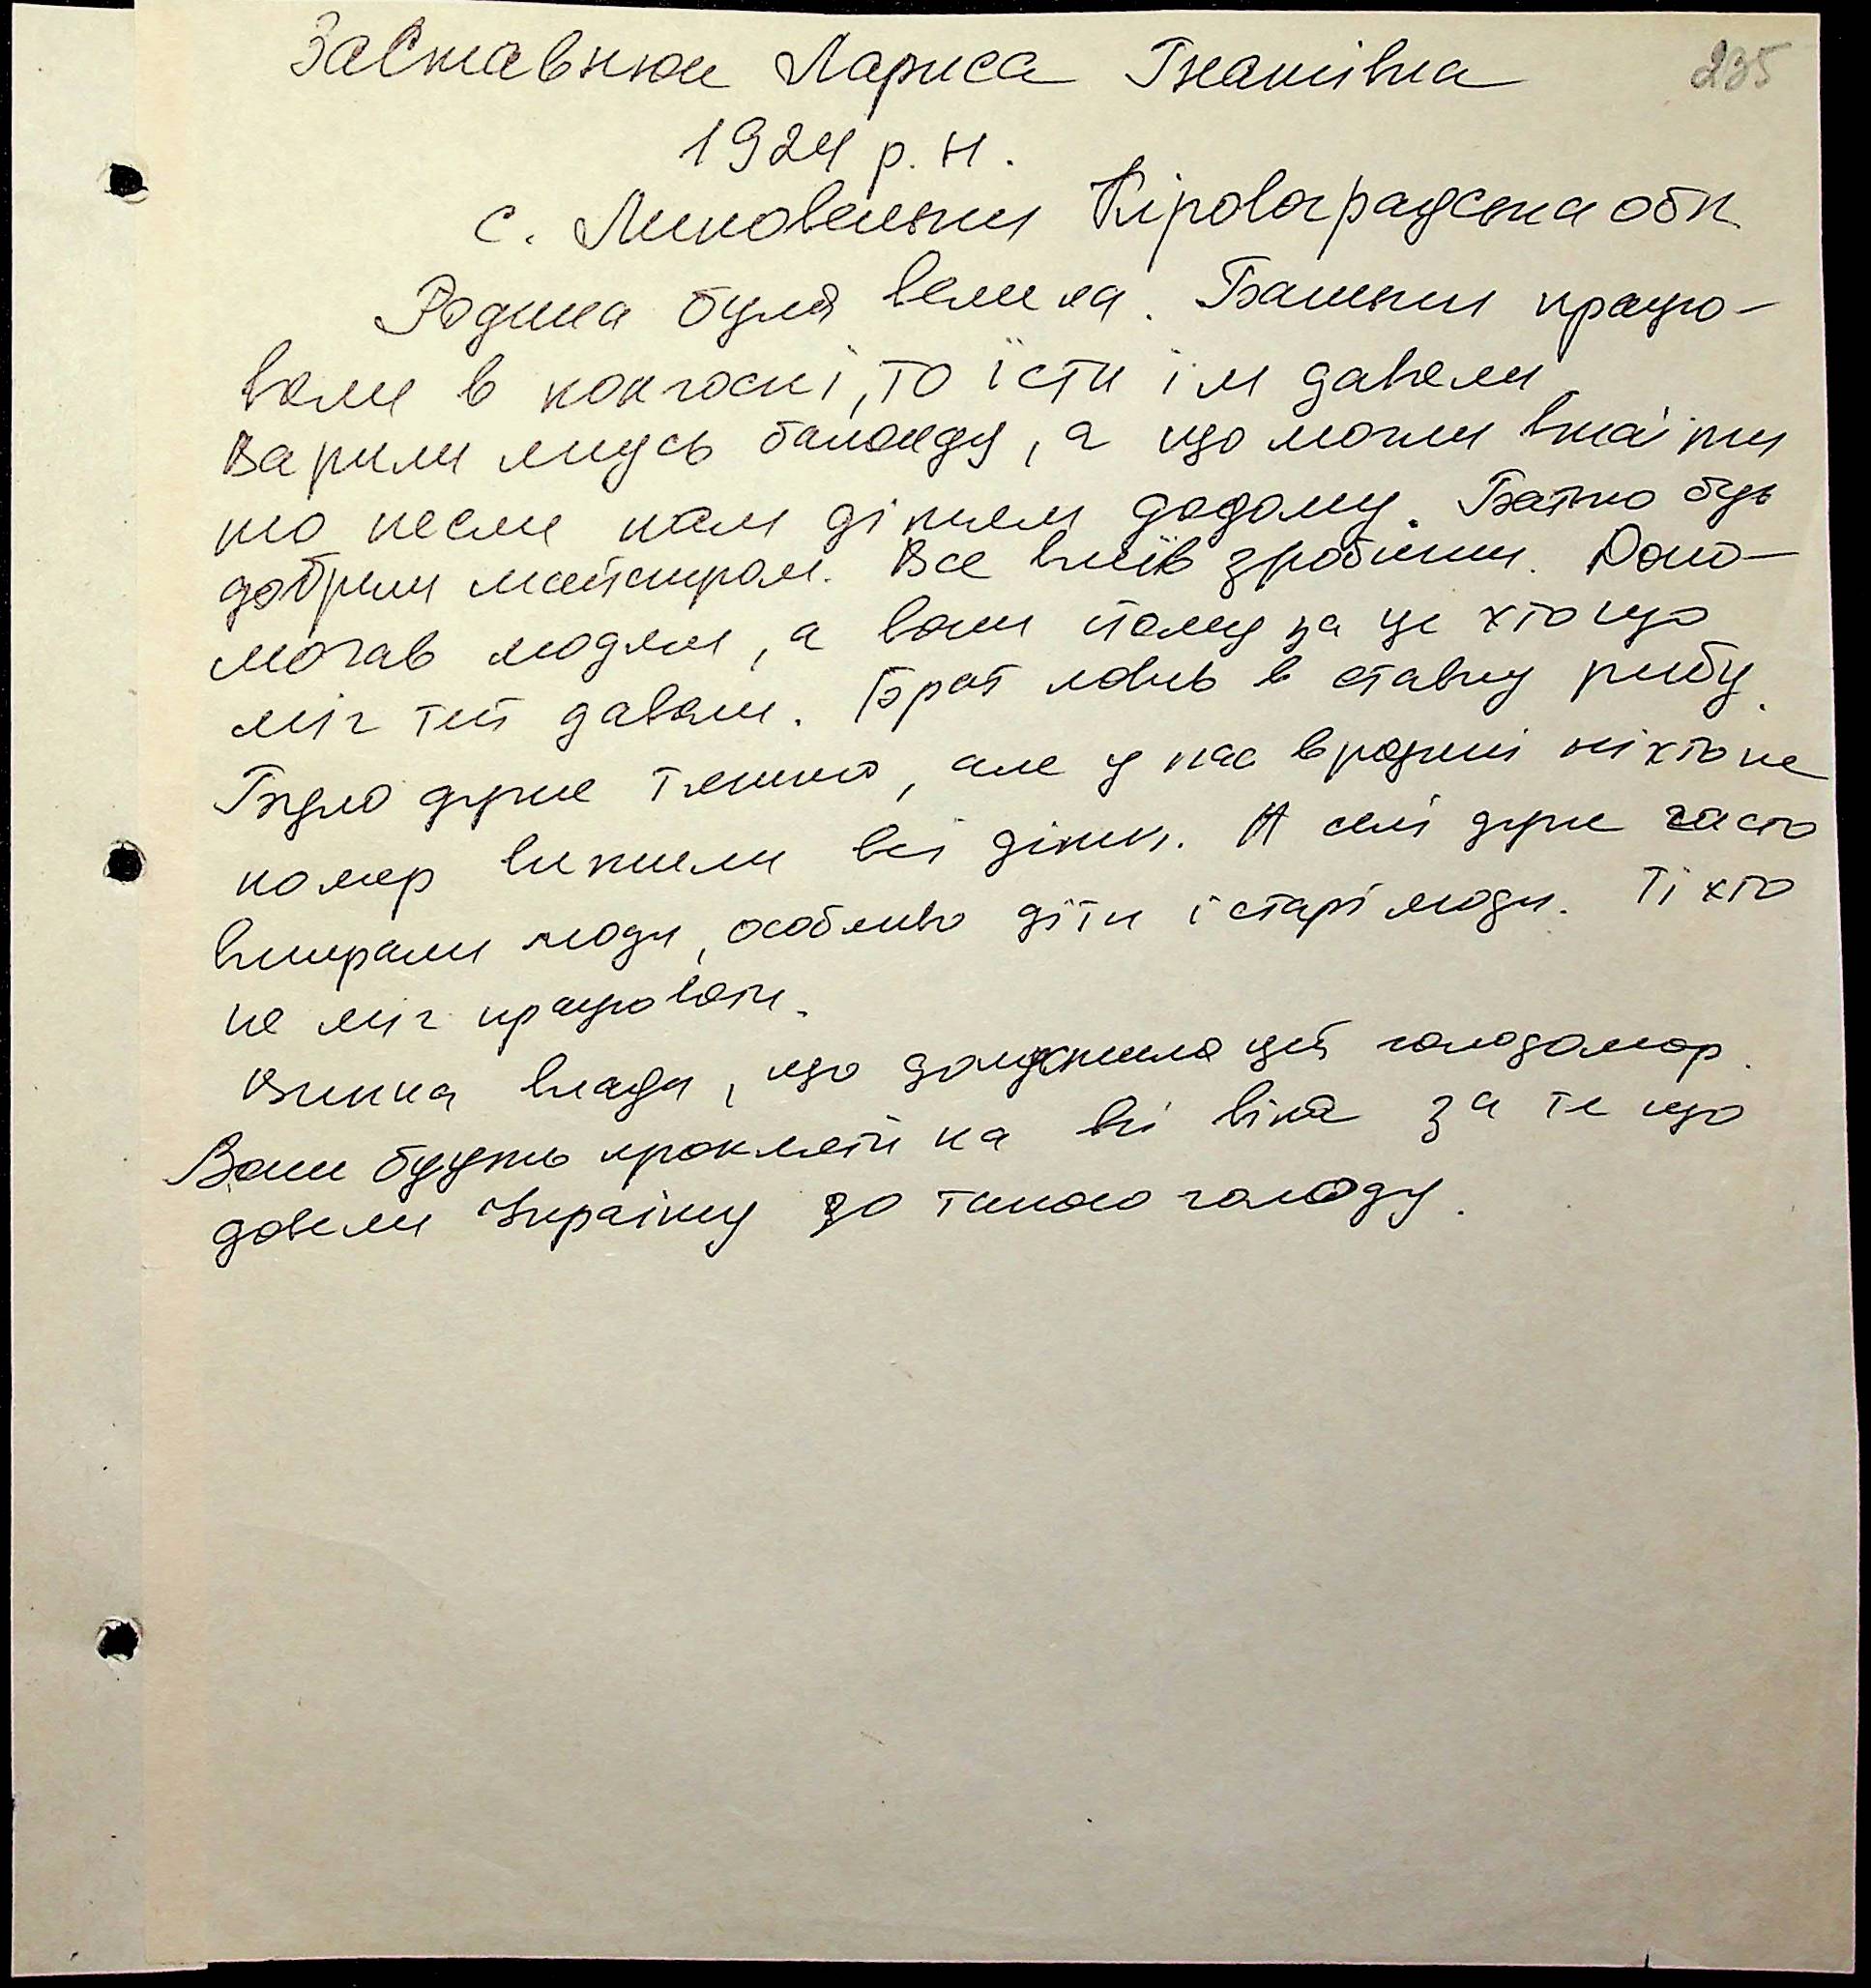 Заставнюк Лариса Гнатівна
235
1924 р. н.
с. Липовеньки Кіровоградська обл
Родина була велика. Батьки працю-
вали в колгоспі, то їсти їм давали
Варили якусь баланду, а що могли вкрасти
то несли нам дітям додому. Батько був
добрим майстром. Все вмів зробити. Допо-
могав людям, а вони йому за це хто що
міг тей давали. Брат ловив в ставку рибу.
Було дуже тяжко, але у нас в родині ніхто не
помер вижили всі діти. А селі дуже часто
вмирали люди, особливо діти і старі люди. Ті хто
не міг працювати.
Винна влада, що допустила цей голодомор.
Вони будуть прокляті на всі віка за те що
довели Україну до такого голоду.